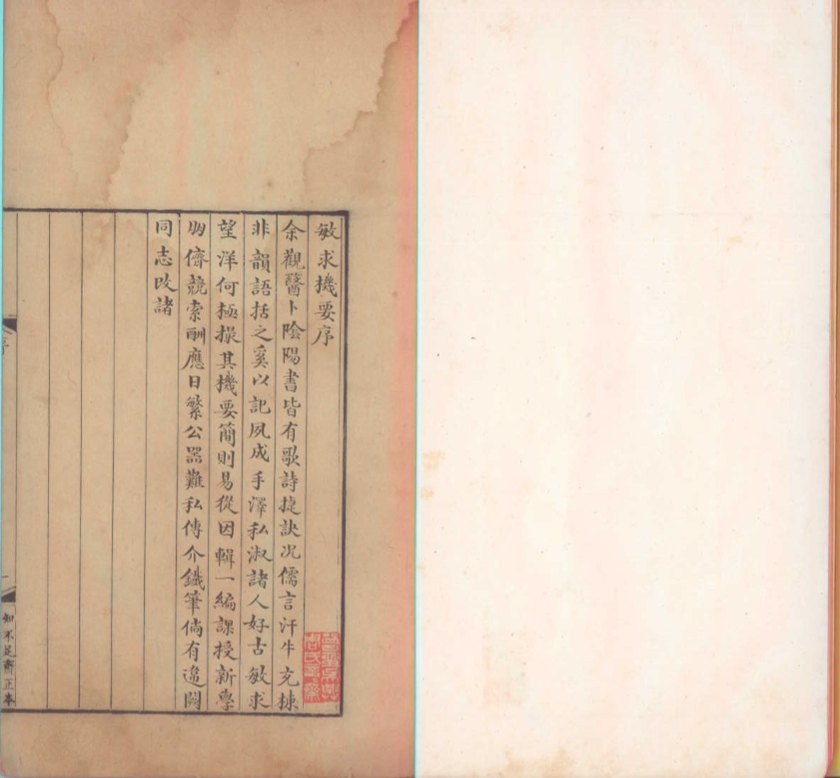 敏求機要序
余觀醫卜陰陽書皆有歌詩捷訣况儒言汗牛充棟
非韻語括之奚以記夙成手澤私淑諸人好古敏求
望洋何極撮其機要簡則易從因輯一編課授新學
朋儕競索酬應日繁公器難私傳介鐵筆倘有遺闕
同志改諸
序
知不足齋正本